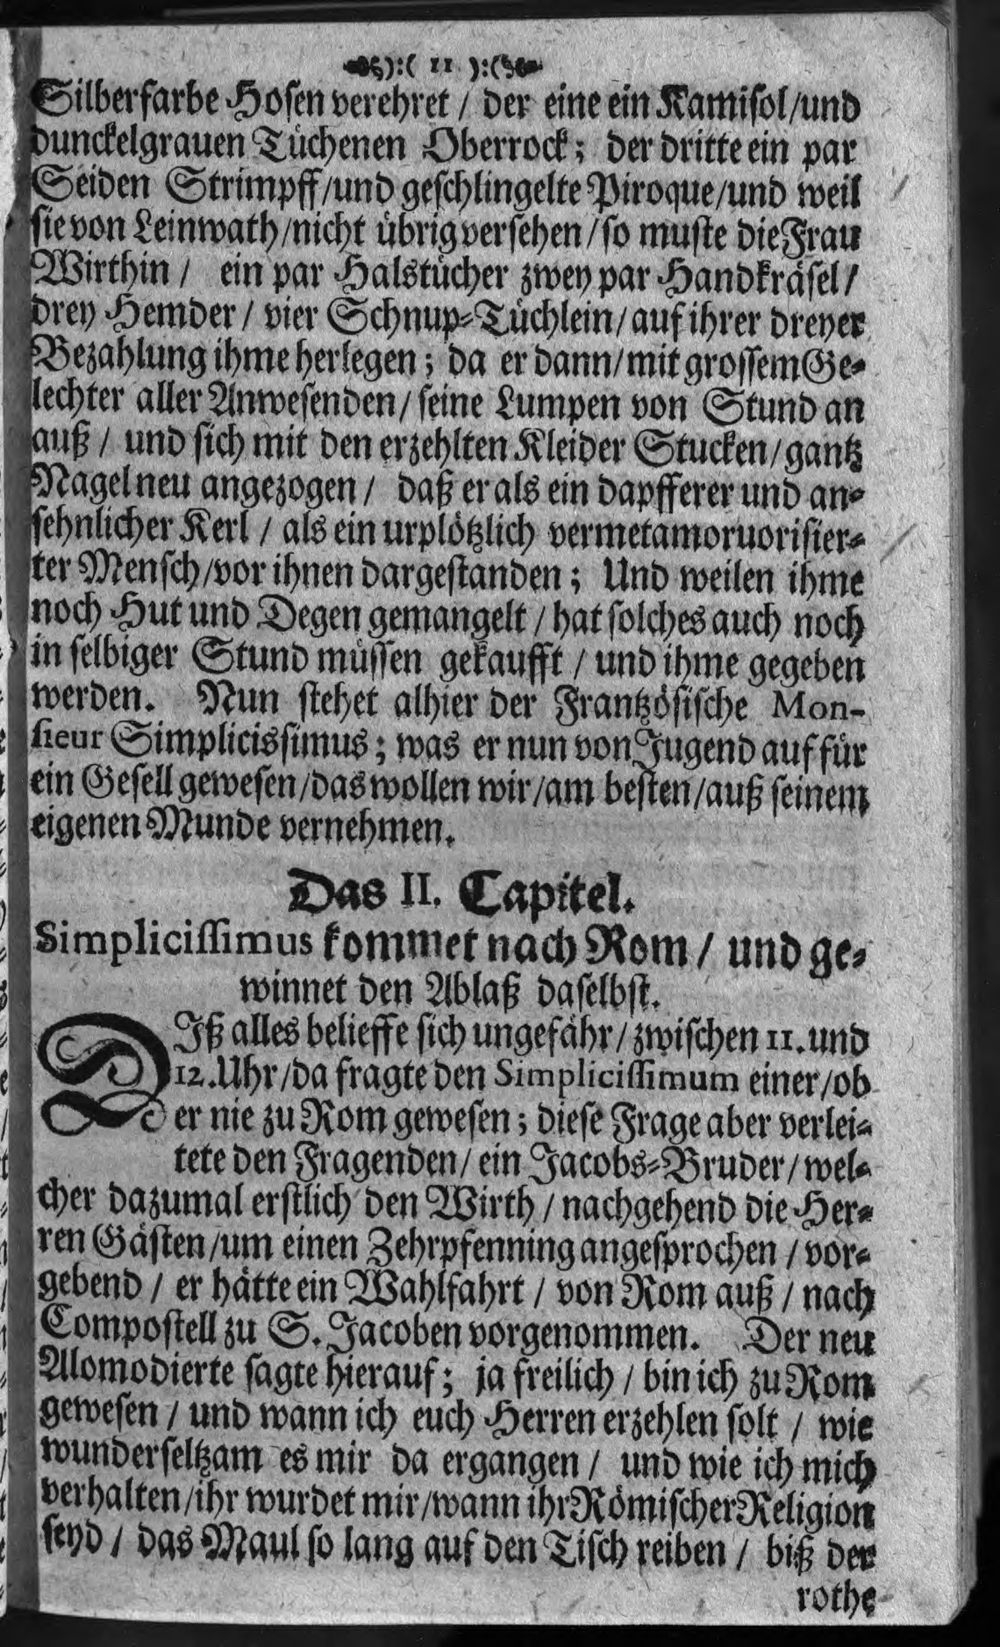 ):( 11 ):(
Silberfarbe Hosen verehret / der eine ein Kamisol/und
dunckelgrauen Tüchenen Oberrock; der dritte ein par
Seiden Strimpff/und geschlingelte Piroque/und weil
sie von Leinwath/nicht übrig versehen/so muste die Frau
Wirthin / ein par Halstücher zwey par Handkräsel/
drey Hemder / vier Schnup-Tüchlein/auf ihrer dreyer
Bezahlung ihme herlegen; da er dann/mit grossem Ge-
lechter aller Anwesenden/ seine Lumpen von Stund an
auß / und sich mit den erzehlten Kleider Stucken/gantz
Nagelneu angezogen / daß er als ein dapfferer und an-
sehnlicher Kerl / als ein urplötzlich vermetamoruorisier-
ter Mensch/vor ihnen dargestanden; Und weilen ihme
noch Hut und Degen gemangelt / hat solches auch noch
in selbiger Stund müssen gekaufft / und ihme gegeben
werden. Nun stehet alhier der Frantzösische Mon-
sieur Simplicissimus; was er nun von Jugend auf für
ein Gesell gewesen/das wollen wir/am besten/auß seinem
eigenen Munde vernehmen.
Das II. Capitel.
Simplicissimus kommet nach Rom / und ge-
winnet den Ablaß daselbst.
DIß alles belieffe sich ungefähr/zwischen 11. und
12. Uhr/da fragte den Simplicissimum einer/ob
er nie zu Rom gewesen; diese Frage aber verlei-
tete den Fragenden/ ein Jacobs-Bruder/wel-
cher dazumal erstlich den Wirth / nachgehend die Her-
ren Gästen/um einen Zehrpfenning angesprochen / vor-
gebend / er hätte ein Wahlfahrt / von Rom auß / nach
Compostell zu S. Jacoben vorgenommen. Der neu
Alomodierte sagte hierauf; ja freilich / bin ich zu Rom
gewesen / und wann ich euch Herren erzehlen solt / wie
wunderseltzam es mir da ergangen / und wie ich mich
verhalten/ihr wurdet mir/wann ihr Römischer Religion
seyd / das Maul so lang auf den Tisch reiben / biß der
rothe